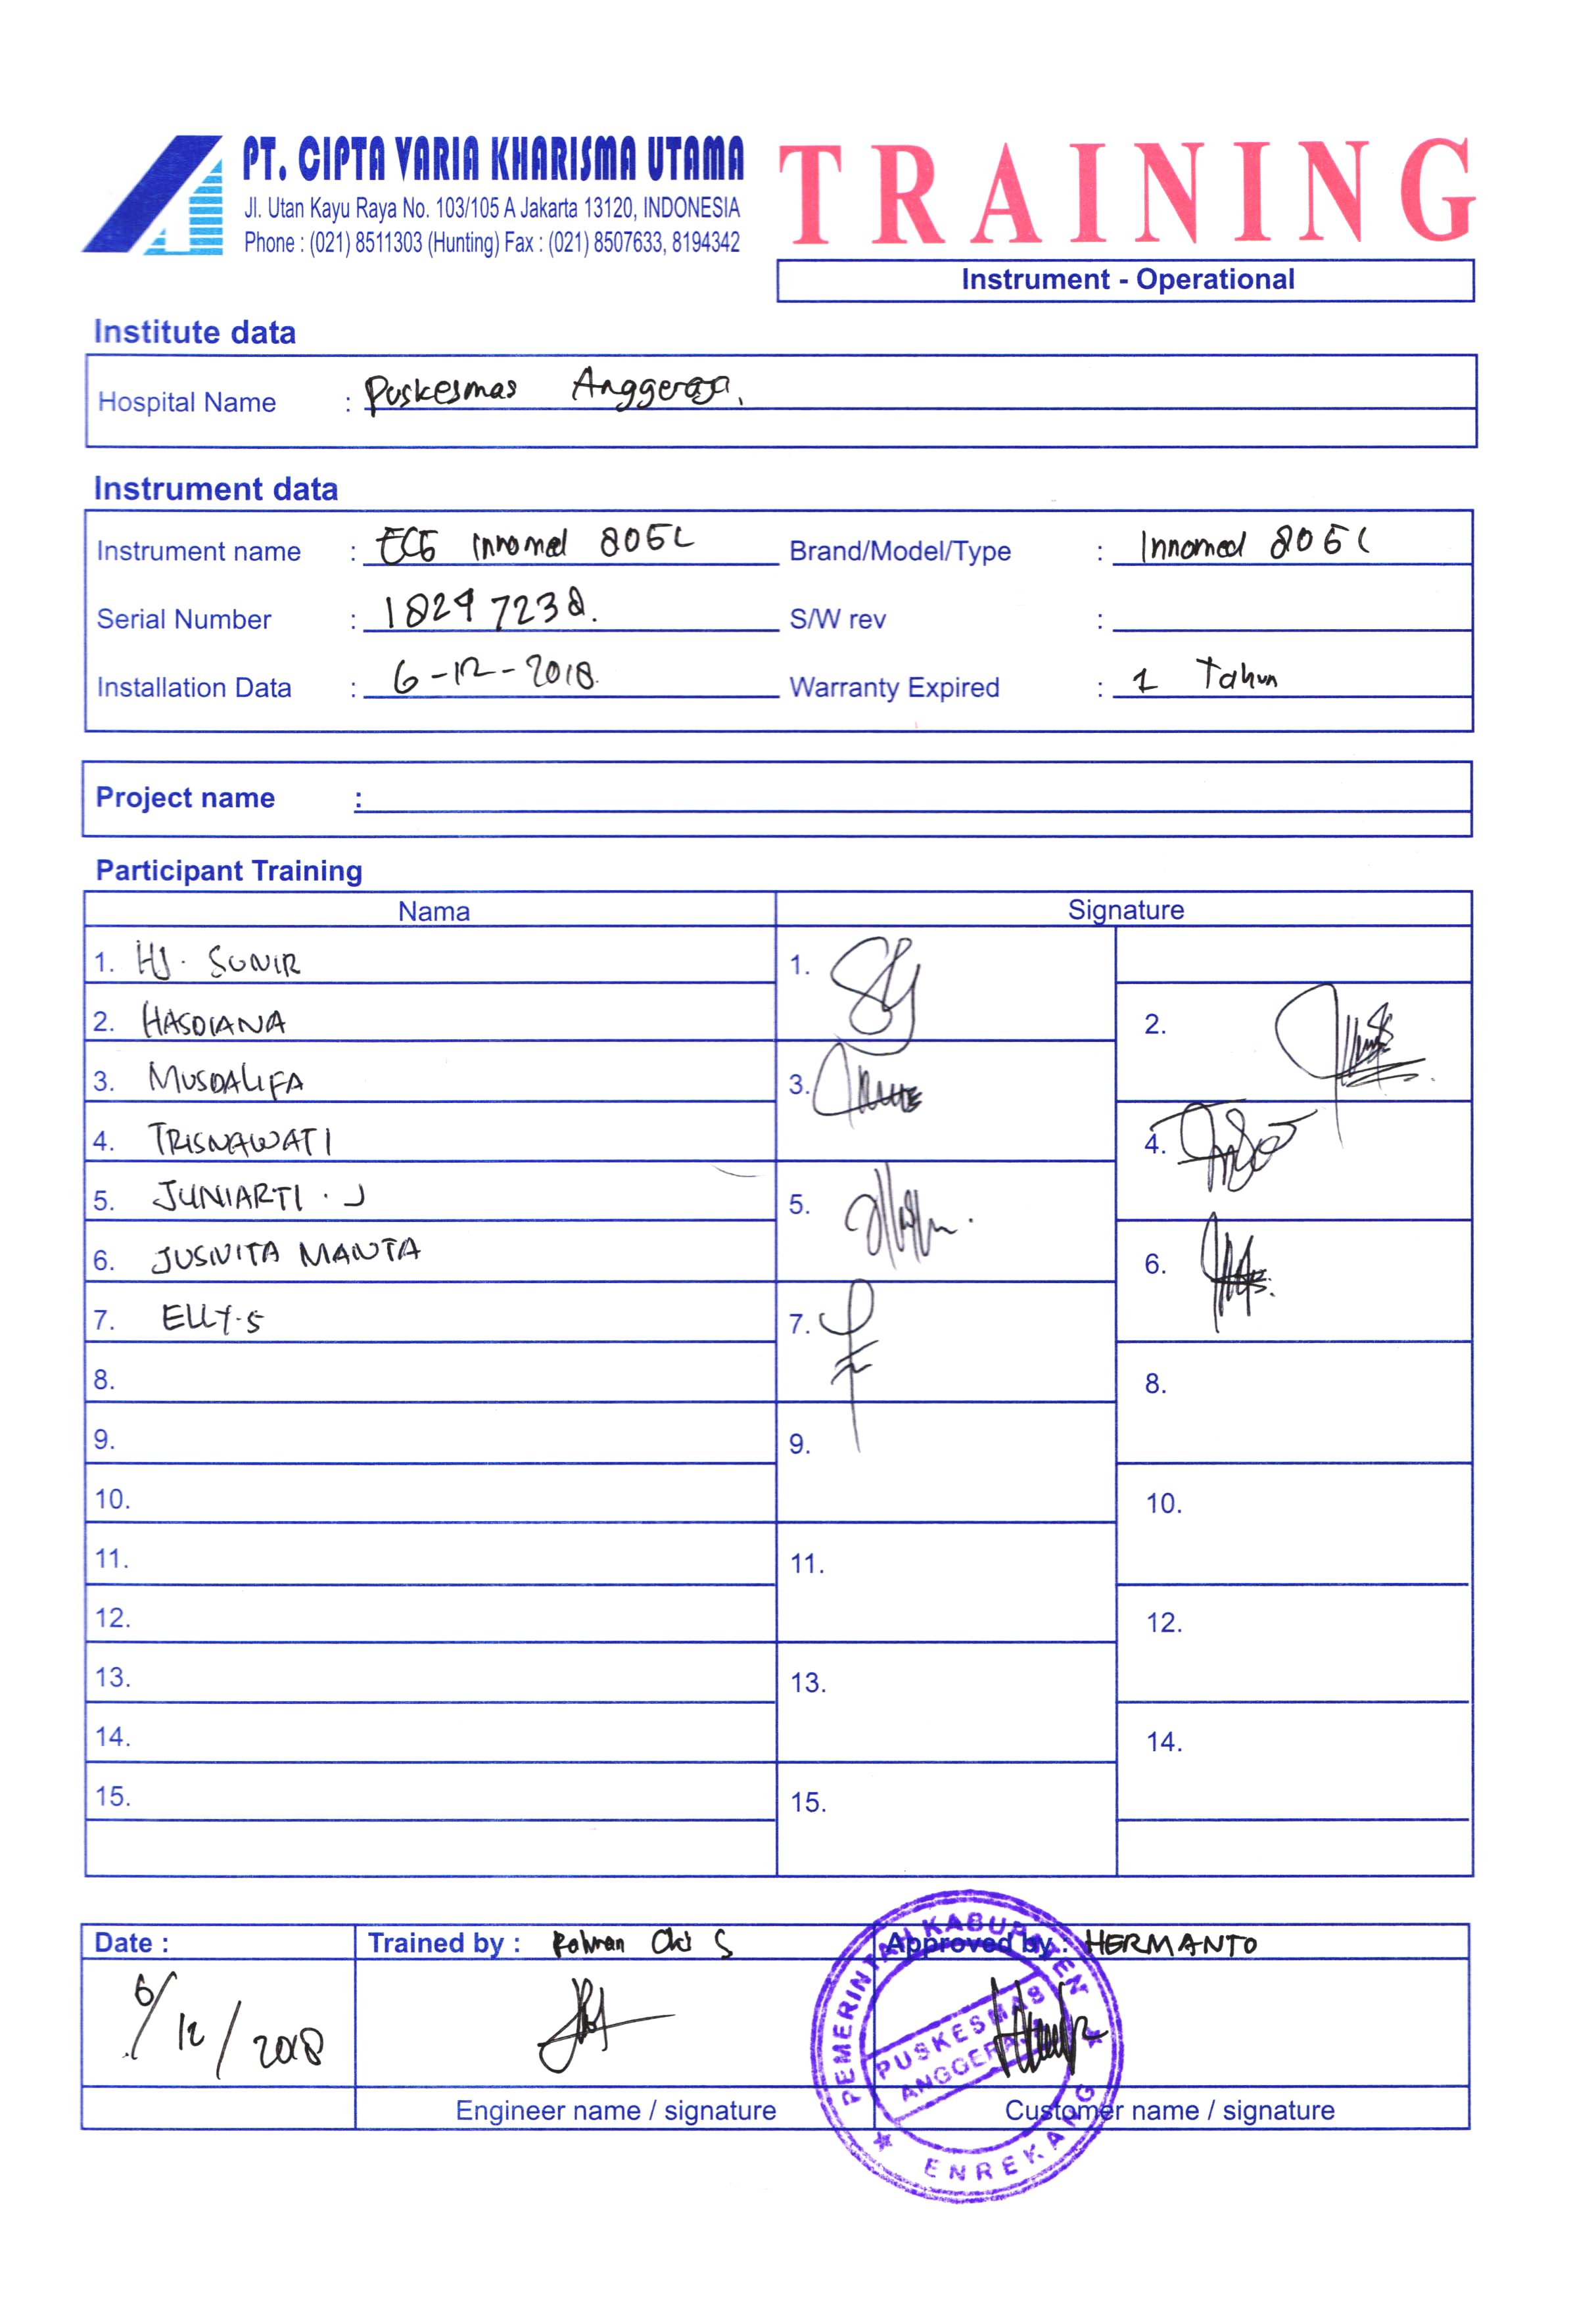 PT. CIPTA VARIA KHARISMA UTAMA
Jl. Utan Kayu Raya No. 103/105 A Jakarta 13120, INDONESIA
Phone : (021) 8511303 (Hunting) Fax : (021) 8507633, 8194342
TRAINING
Instrument - Operational
Institute data
Hospital Name : Puskesmas
Instrument data
Instrument name : ECG Innomed 805L Brand/Model/Type : Innomed
Serial Number : 18297238. S/W rev :
Installation Data : 6-12-2018 Warranty Expired : 1 Tahun
Project name :
Participant Training
Nama Signature
1. HJ. SUNIR 1.
2. HASDIANA 2.
3. MUSDALIFA 3.
4. TRISNAWATI 4.
5. JUNIARTI. J 5.
6. JUSNITA MANTA 6.
7. ELLY.S 7.
8. 8.
9. 9.
10. 10.
11. 11.
12. 12.
13. 13.
14. 14.
15. 15.
Date : Trained by : Approved by : HERMANTO
6/12/2018
Engineer name / signature Customer name / signature
PEMERINTAH KABUPATEN
PUSKESMAS
ANGGERAJA
ENREKANG